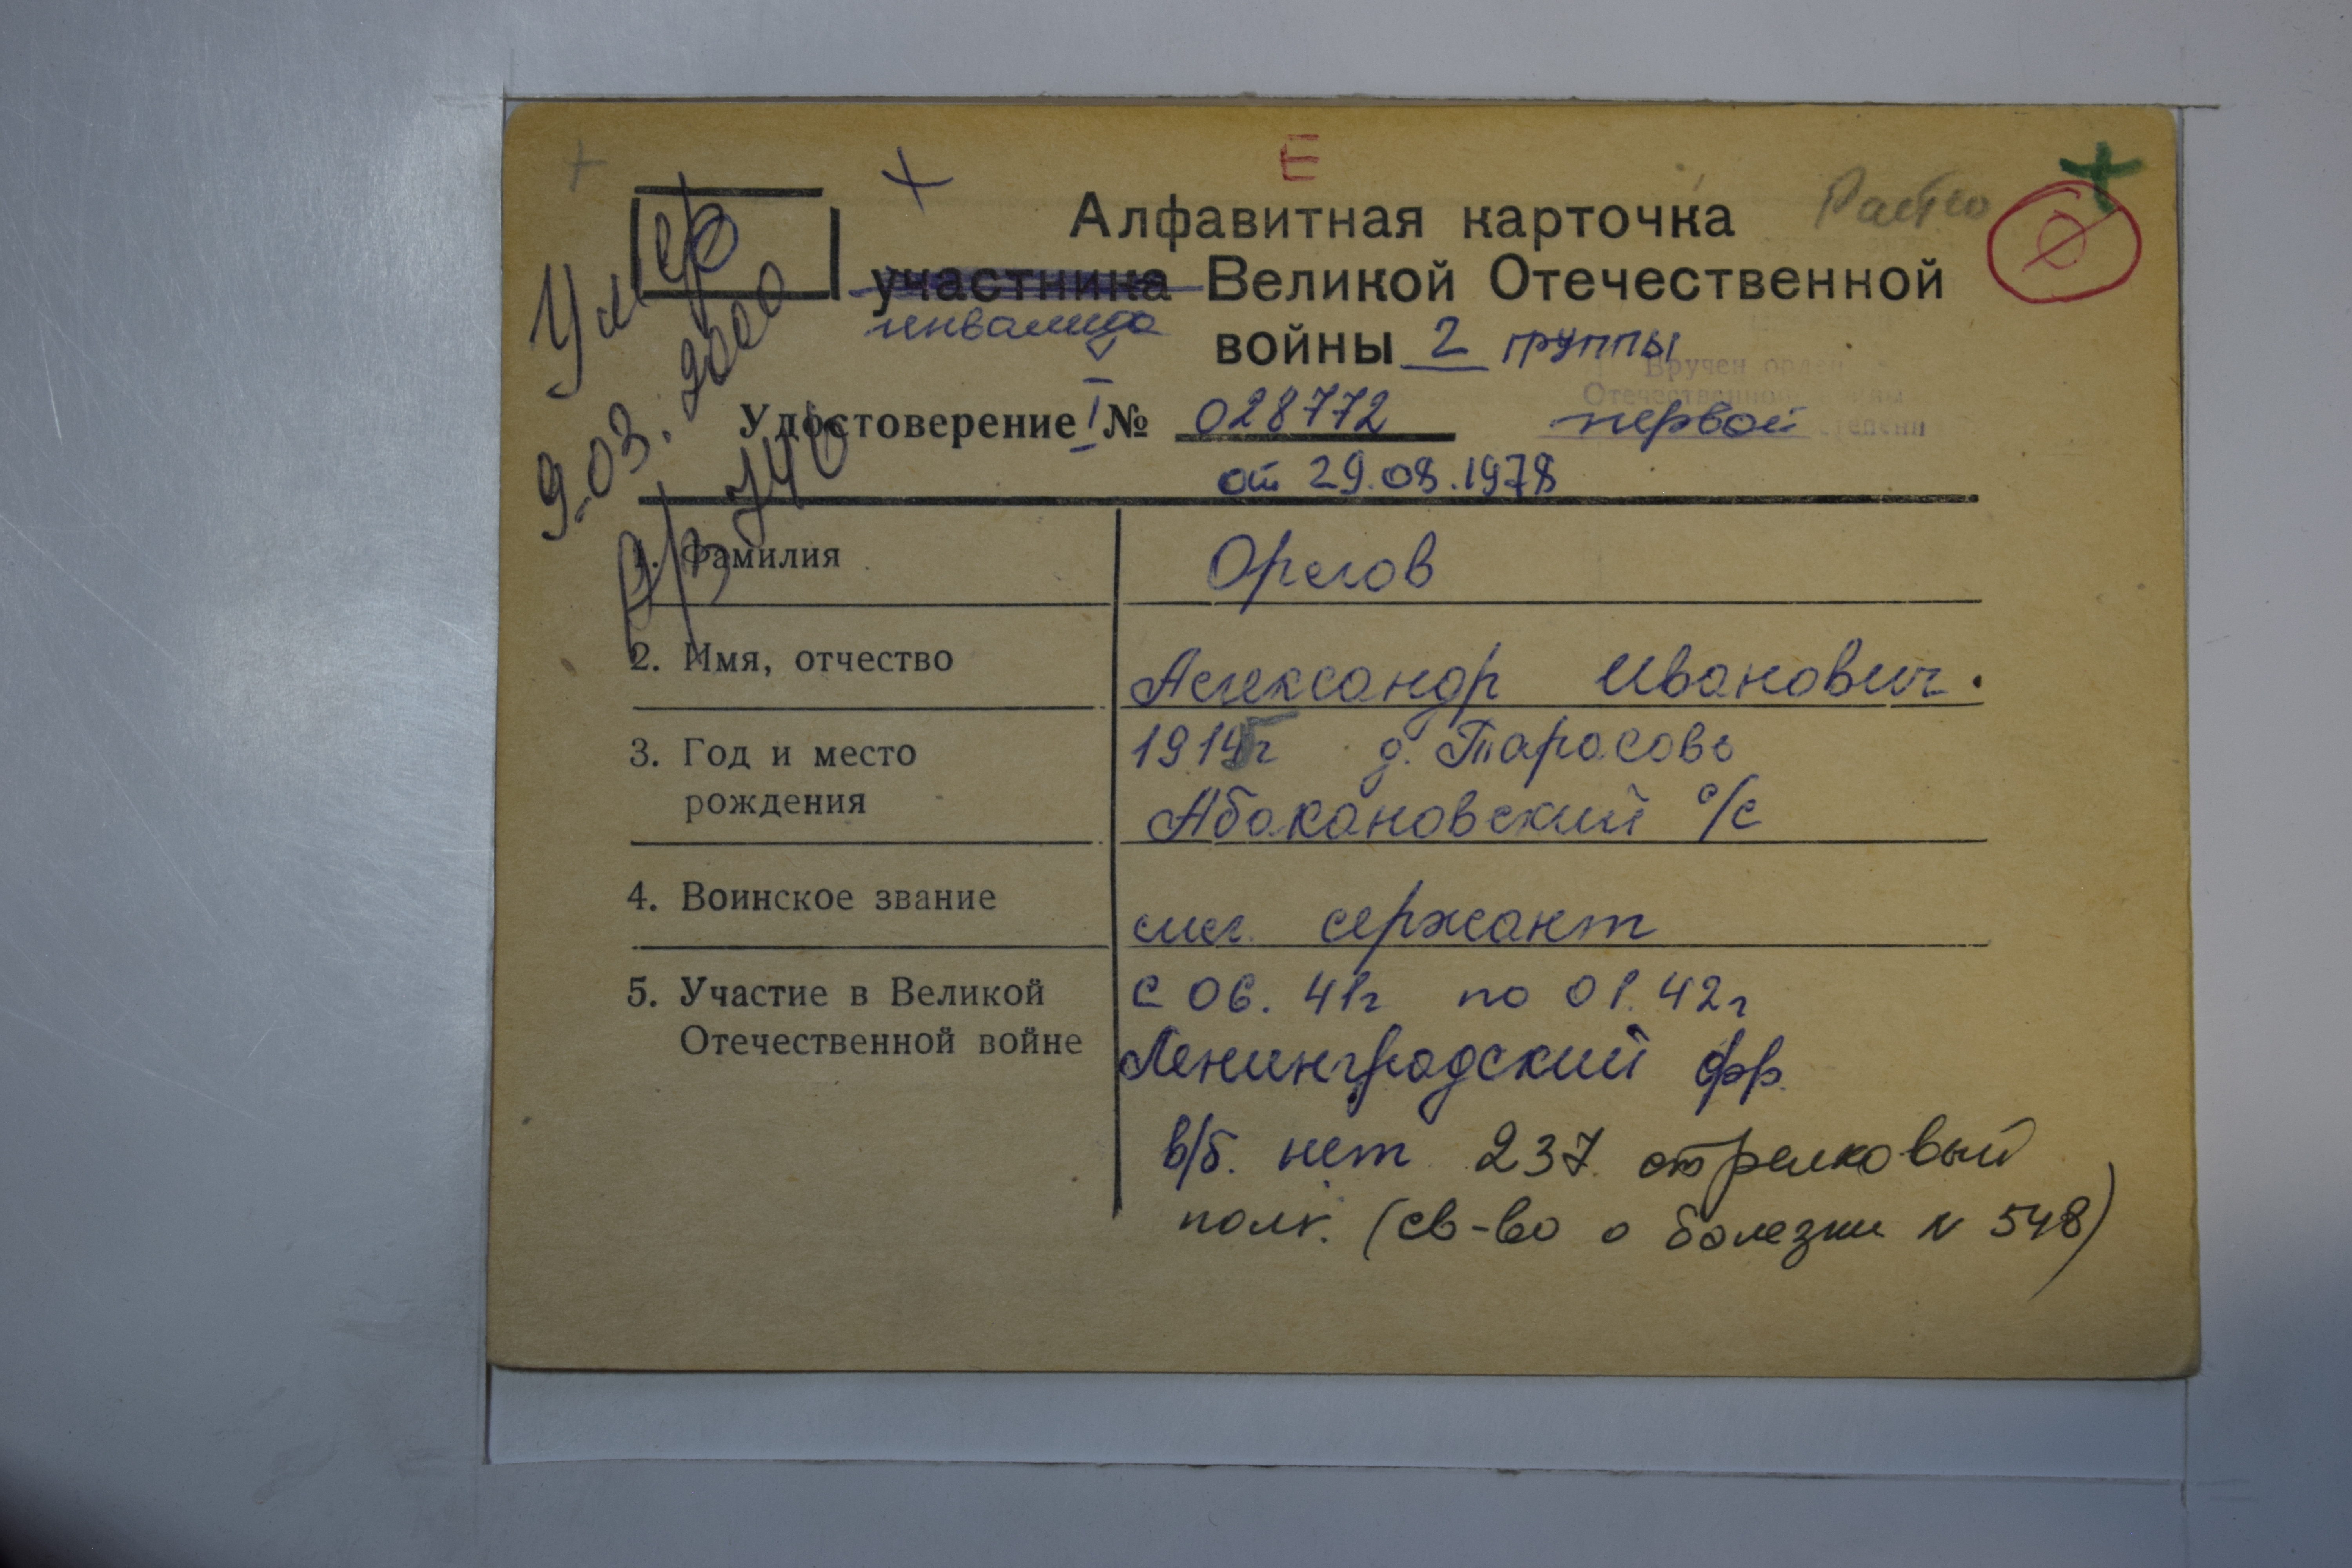 Е
Алфавитная карточка
участника Великой Отечественной
инвалида
войны 2 группы
Умер
9.03.2000
а/з 740
Вручен орден
Отечественной войны
первой степени
Удостоверение I № 028772
от 29.08.1978
1. Фамилия Орлов
2. Имя, отчество Александр Иванович.
3. Год и место 1915г д. Тарасово
рождения Абакановский с/с
4. Воинское звание мл. сержант
5. Участие в Великой с 06. 41г по 01.42г
Отечественной войне Ленинградский фр.
в/б. нет 237 стрелковый
полк. (св-во о болезни N 548)